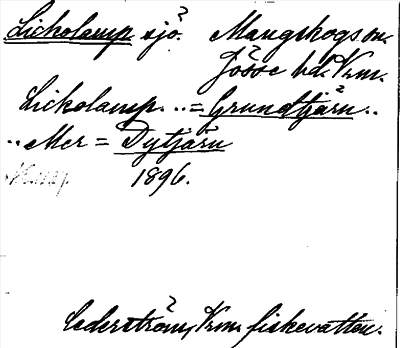 Lickolamp sjö. Mangskogs sn.
Jösse hd. Vrm.
Lickolamp. ..= Grundtjärn..
..Mer = Dytjärn
1896.
Cederström, Vrm. fiskevatten.